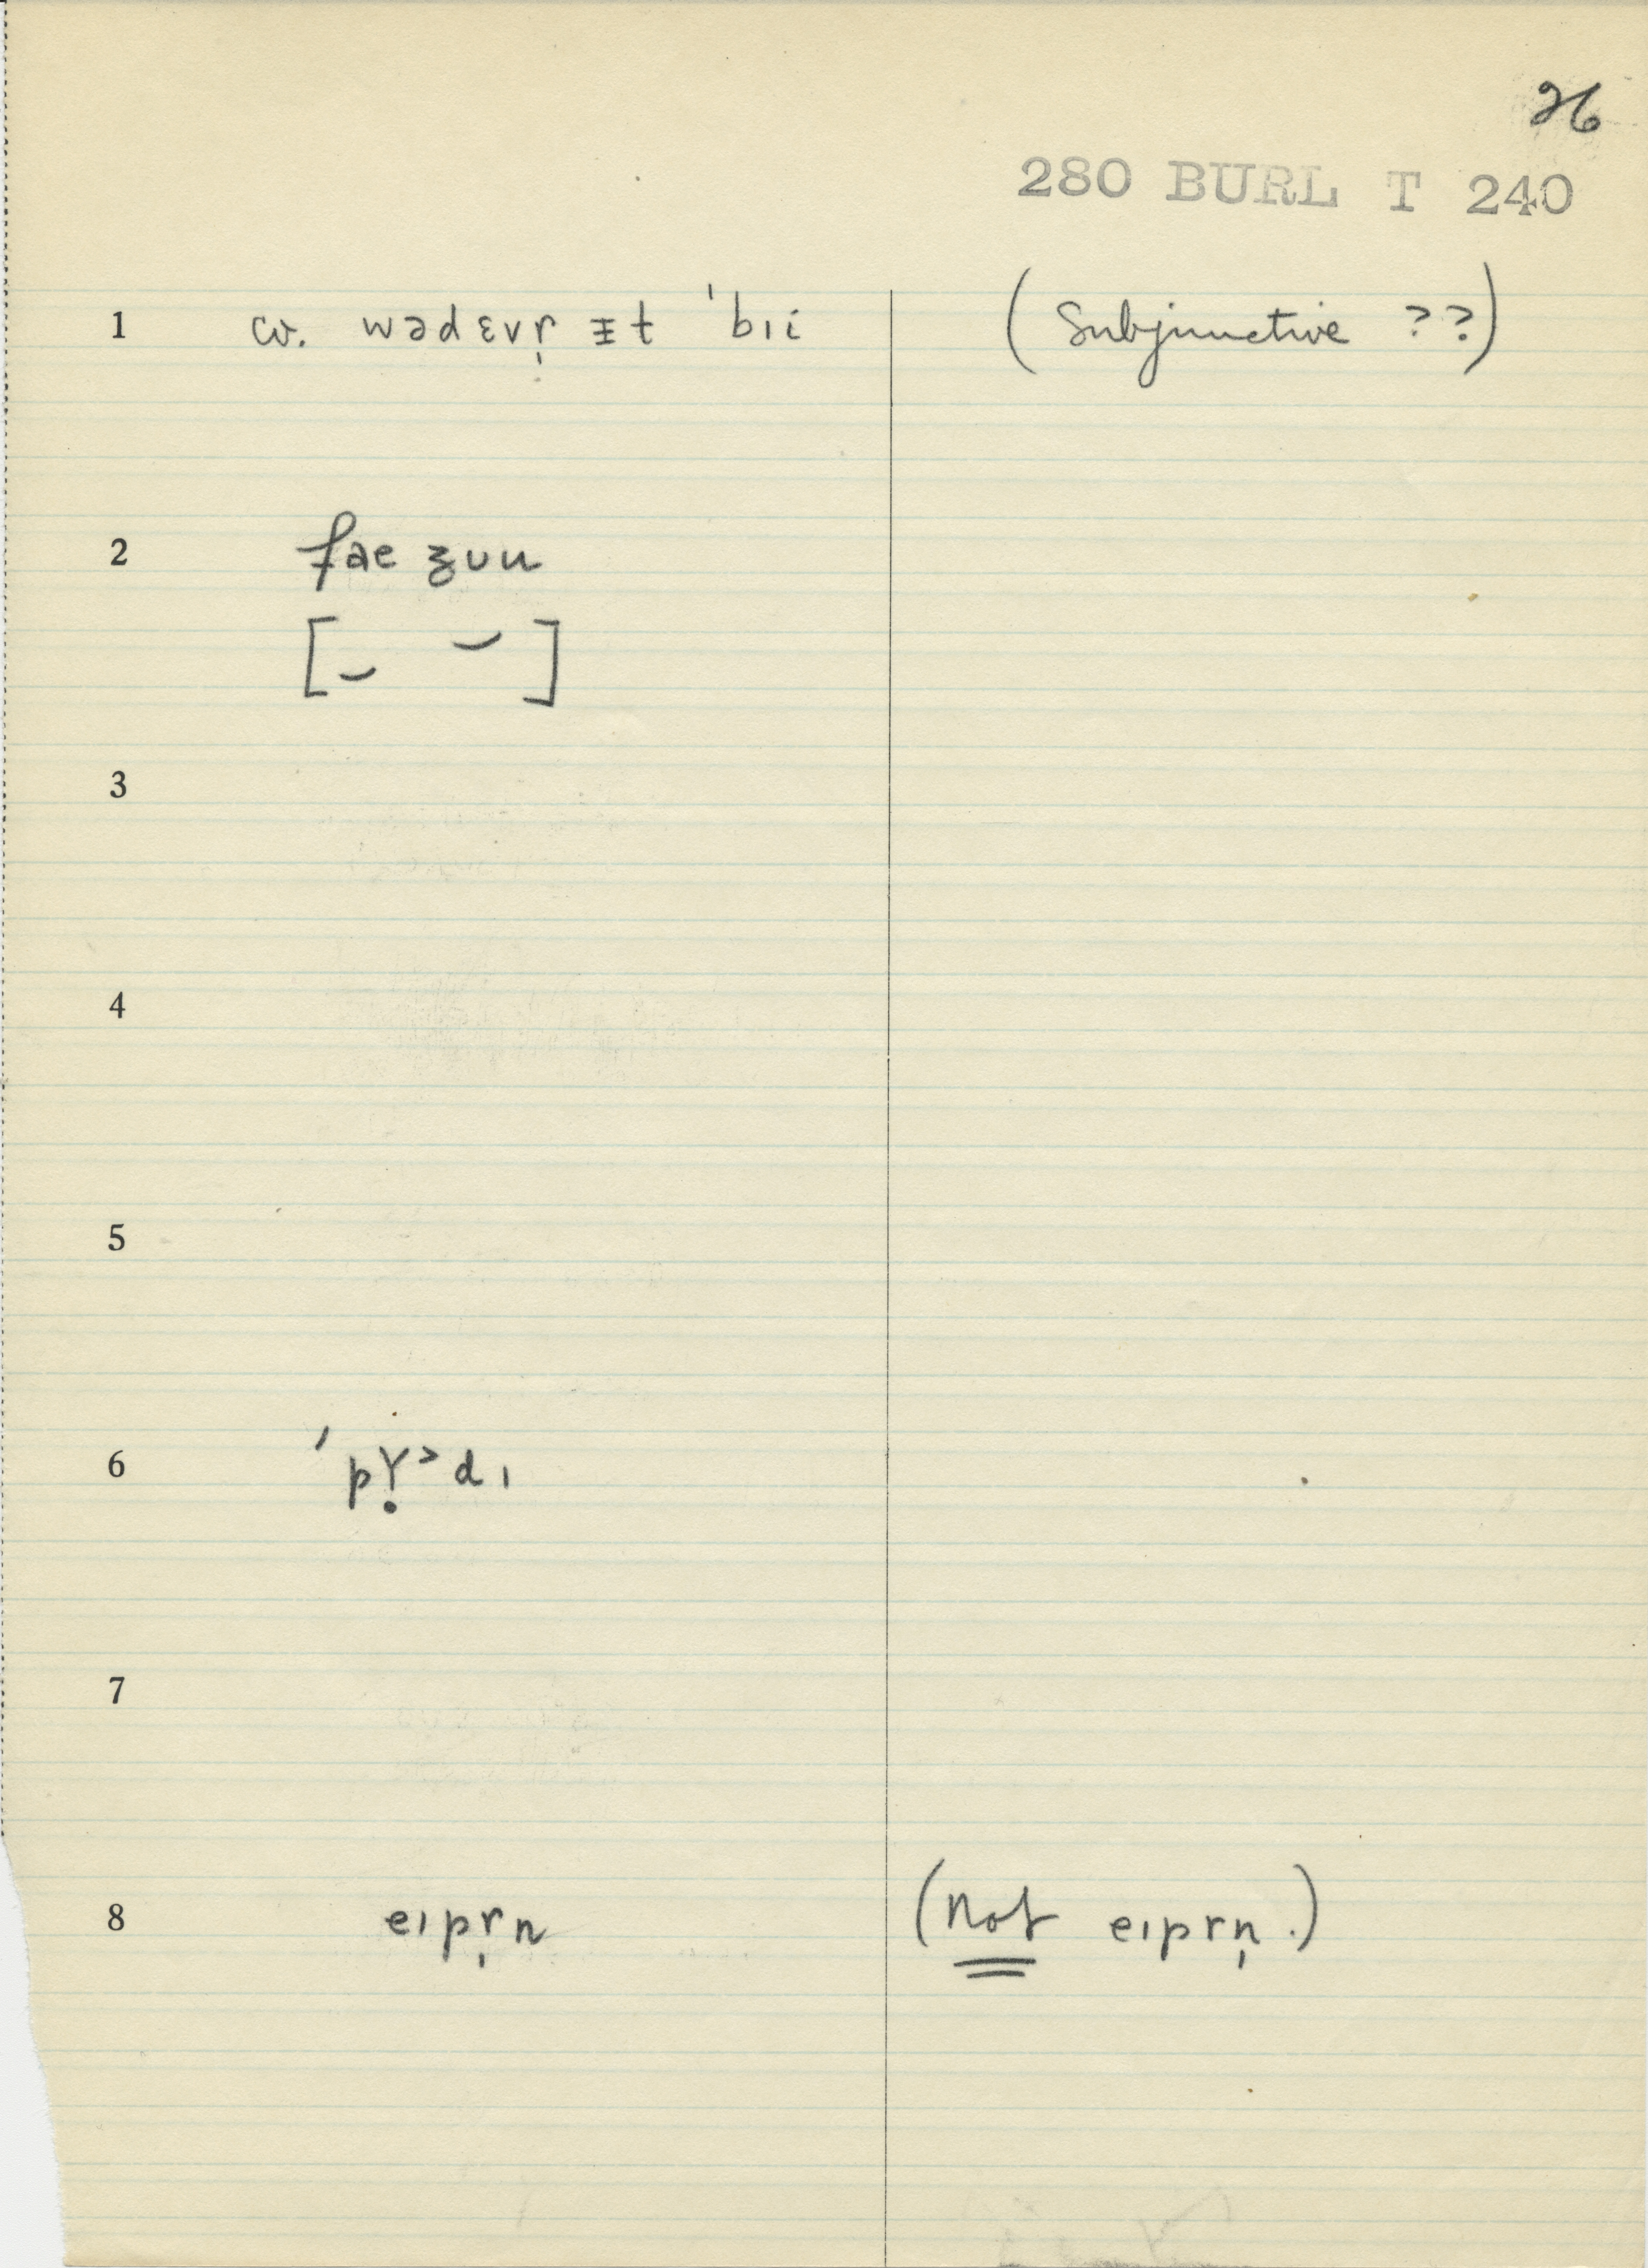 26
280 BURL T 240
1 cv. wədɛvr̩ ᵻt ˈbɪi (Subjunctive ??)
2 fɚe ʒʊu
[ ]
3
4
5
6 ˈpɤ̣˃dɪ
7
8 eɪpr̩n (not eɪprn̩.)